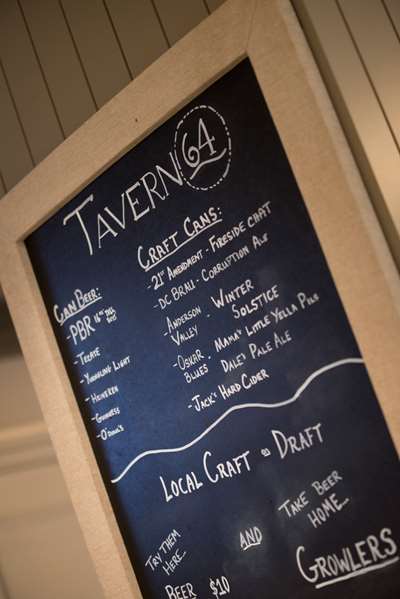 TAVERN 64
CAN BEER:
- PBR 16oz TALL BOYS
- TECATE
- YUENGLING LIGHT
- HEINEKEN
- GUINNESS
- O'DOUL'S
CRAFT CANS:
- 21ST AMENDMENT - FIRESIDE CHAT
- DC BRAU - CORRUPTION ALE
ANDERSON VALLEY - WINTER SOLSTICE
- OSKAR BLUES - MAMA'S LITTLE YELLA PILS
DALE'S PALE ALE
- JACK'S HARD CIDER
LOCAL CRAFT ON DRAFT
TRY THEM
HERE...
AND
TAKE BEER
HOME...
BEER $10
GROWLERS